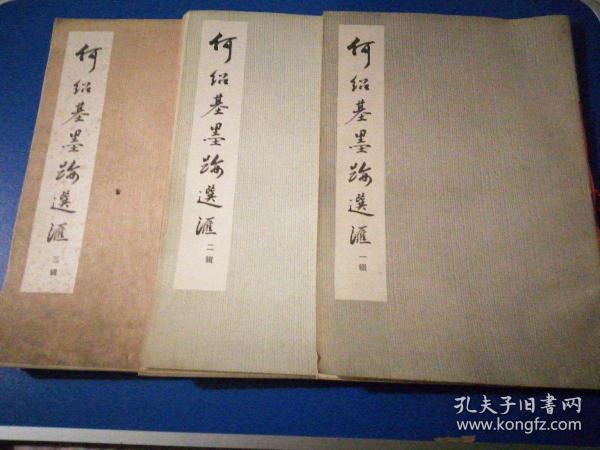 何绍基墨跡選滙
三辑
何绍基墨跡選滙
二辑
何绍基墨跡選滙
一辑
孔夫子旧书网
www.kongfz.com